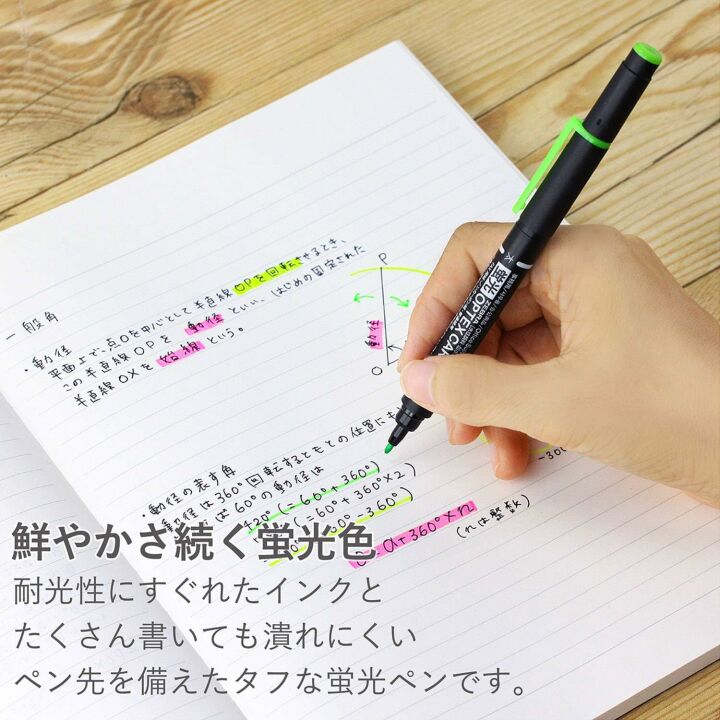 一般角
・動径
平面上で、点Oを中心として半直線OPを回転させるとき、
この半直線OPを動径といい、はじめの固定された
半直線OXを始線という。
P
動径
O
・動径の表す角
動径は360°回転するともとの位置に
は60°の動径は
420°(=60°+360°)
(=60°+360°×2)
-360°)
a+360°×n
(nは整数)
太
蛍光 OPTEX CA
鮮やかさ続く蛍光色
耐光性にすぐれたインクと
たくさん書いても潰れにくい
ペン先を備えたタフな蛍光ペンです。